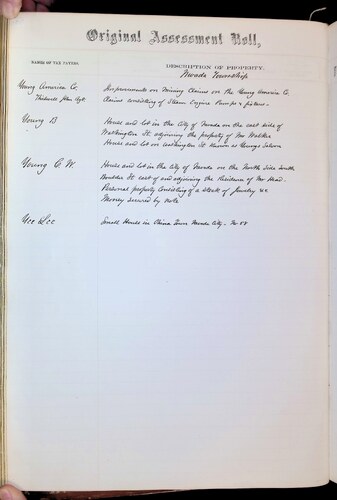 Original Assessment Roll,
NAMES OF TAX PAYERS.
DESCRIPTION OF PROPERTY.
Nevada Township
Young America Co.
Improvements on Mining Claims on the Young America Co.
Agt
Claims consisting of Steam Engine Pumps & fixtures.
Young B
House and lot in the City of Nevada on the east side of
Washington St. adjoining the property of Mr Walker
House and lot on Washington St known as Youngs Saloon
Young C. W.
House and lot in the City of Nevada on the North Side South
Boulder St east of and adjoining the Residence of Mr Head.
Personal property Consisting of a Stock of Jewelry &c
Money secured by note
Yee Lee
Small House in China Town Nevada City. No 58